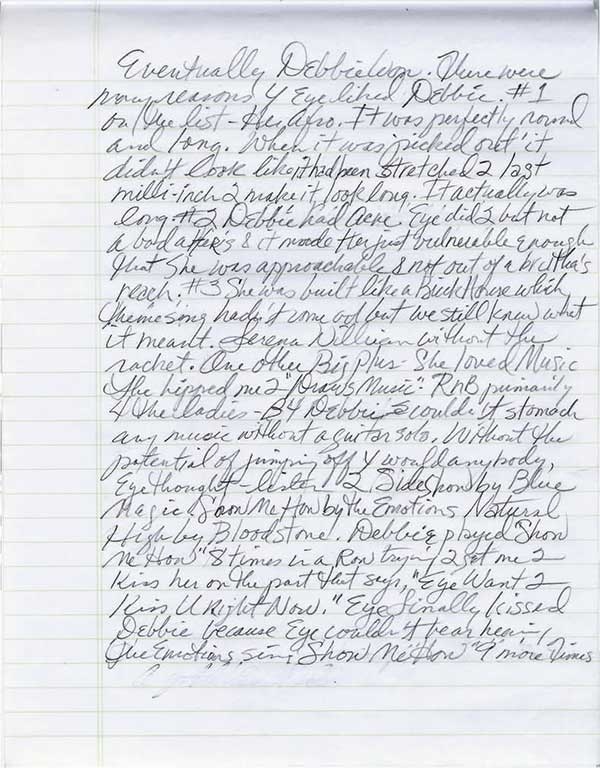 Eventually Debbie won. There were
many reasons 4 Eye liked Debbie. #1
on the list - Her Afro. It was perfectly round
and long. When it was "picked out" it
didn't look like it had been stretched 2 last
milli-inch 2 make it look long. It actually was
long. #2 Debbie had Acne. Eye did 2 but not
as bad as hers & it made Her just vulnerable enough
that She was approachable & not out of a brotha's
reach. #3 She was built like a Brick House which
theme song hadn't come out but we still knew what
it meant. Serena William without the
racket. One other Big Plus - She loved Music
She hipped me 2 "Draws Music". RnB primarily
4 the ladies - B4 Debbie couldn't stomach
any music without a guitar solo. Without the
potential of jumping off 4 would anybody,
Eye thought - listen 2 Sideshow by Blue
Magic, Show Me How by the Emotions, Natural
High by Bloodstone. Debbie played Show
Me How" 8 times in a Row tryin' 2 get me 2
kiss her on the part that says, "Eye Want 2
Kiss U Right Now." Eye finally kissed
Debbie because Eye couldn't bear hearing
the Emotions sing Show Me How" 9 more Times